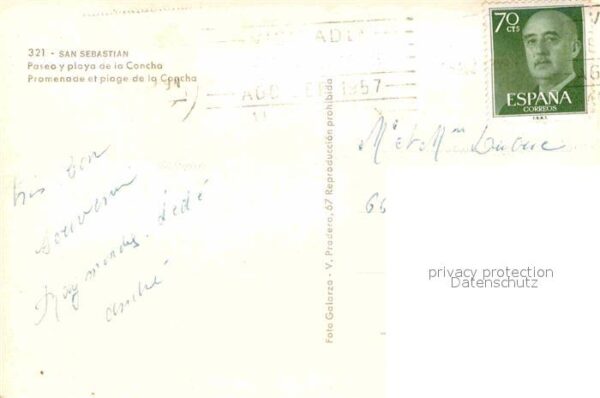 321 - SAN SEBASTIAN
Paseo y playa de la Concha
Promenade et plage de la Concha
1957
70
CTS
ESPAÑA
CORREOS
Foto Galarza - V. Pradera, 67 Reproducción prohibida
Mr et Mme
66
très bon
souvenir
Raymonde. dédé
andré
privacy protection
Datenschutz